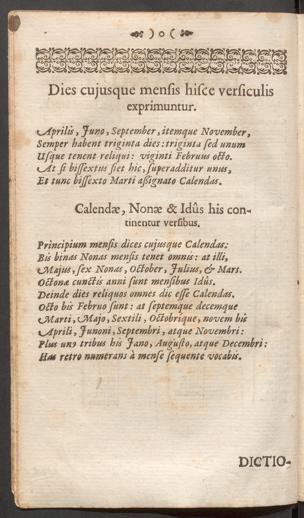 ) o (
Dies cujusque mensis hisce versiculis
exprimuntur.
Aprilis, Juno, September, itemque November,
Semper habent triginta dies: triginta sed unum
Usque tenent reliqui: viginti Februus octo.
At si bissextus siet hic, superadditur unus,
Et tunc bissexto Marti assignato Calendas.
Calendæ, Nonæ & Idûs his con-
tinentur versibus.
Principium mensis dices cujusque Calendas:
Bis binas Nonas mensis tenet omnis: at illi,
Majus, sex Nonas, October, Julius, & Mars.
Octonæ cunctis anni sunt mensibus Idûs.
Deinde dies reliquos omnes dic esse Calendas.
Octo bis Februo sunt: at septemque decemque
Marti, Majo, Sextili, Octobrique, novem bis
Aprili, Junoni, Septembri, atque Novembri:
Plus uno tribus his Jano, Augusto, atque Decembri:
Has retro numerans à mense sequente vocabis.
DICTIO-